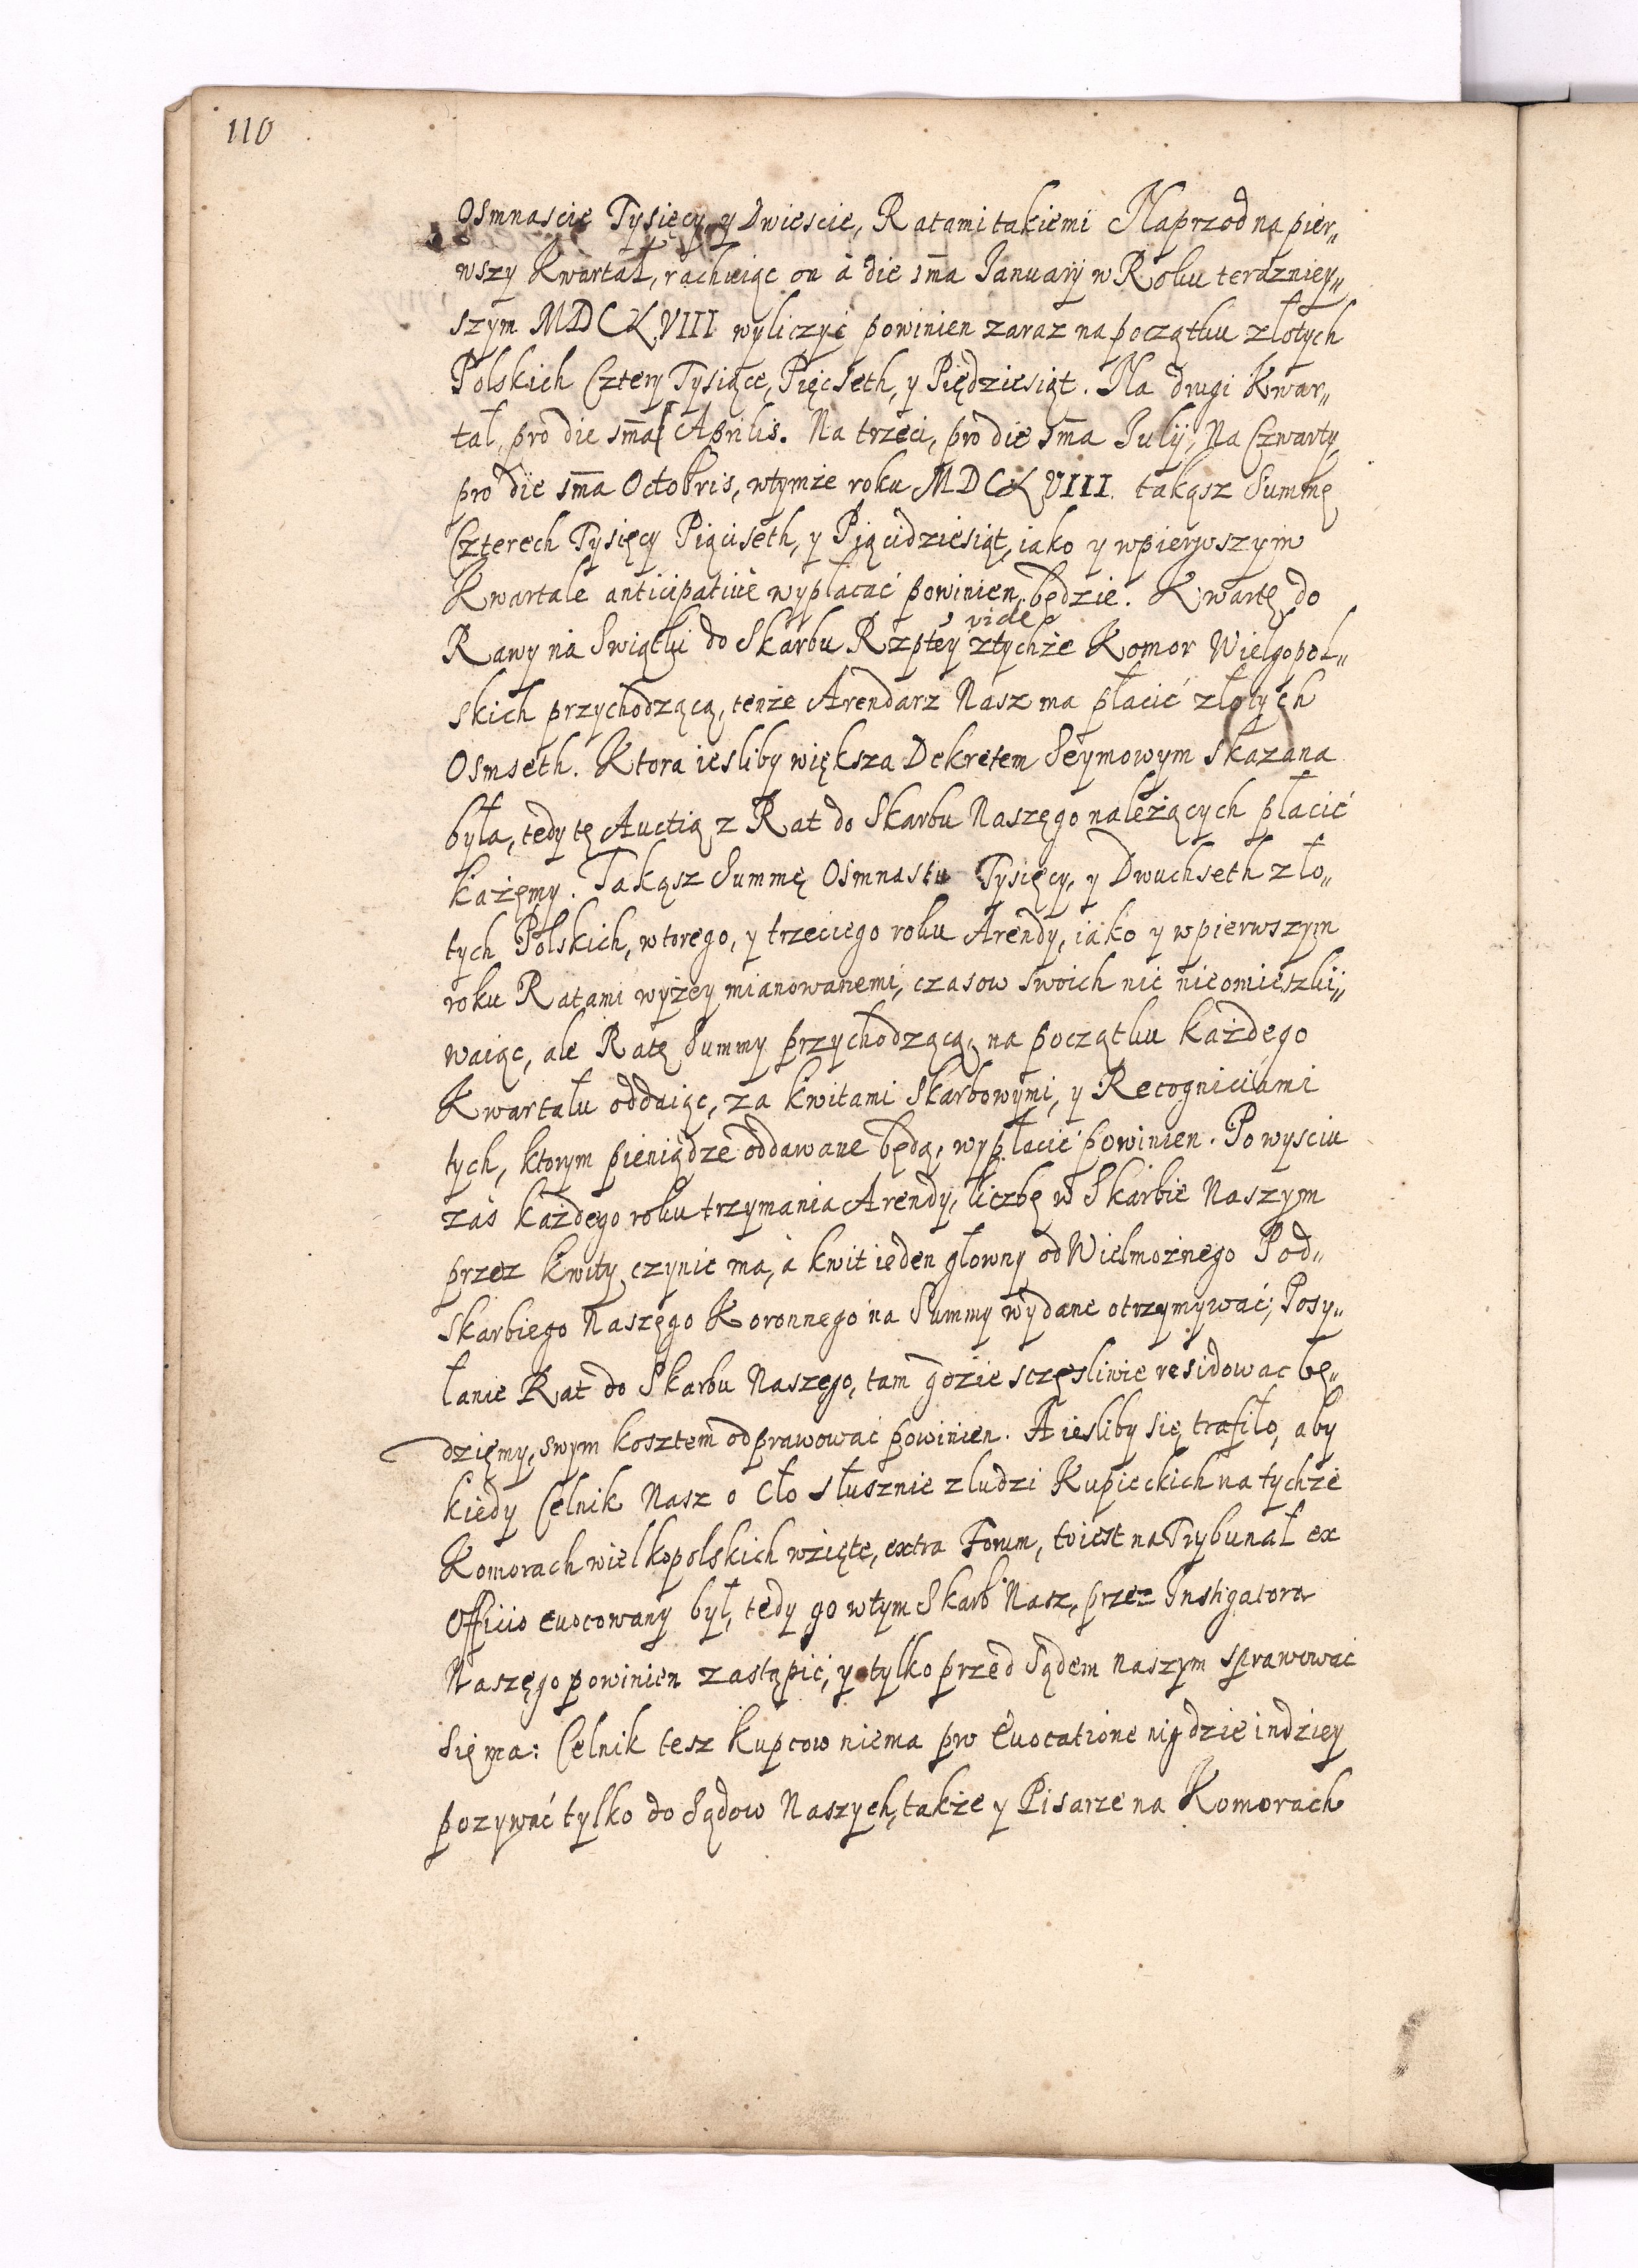 110
Osmnascie Tysięcy, y Dwiescie, Ratami takiemi Naprzod na pier„
wszy Kwartał, rachuiąc on à die 1ma Ianuarij w Roku teraznieÿ„
szym MDCXLVIII wyliczyć powinien zaraz na początku złotych
Polskich Cztery Tysiące, Pięcseth, y Piędziesiąt. Na drugi Kwar„
tal, pro die 1ma Aprilis. Na trzeci, pro die 1ma Iulij, Na Czwarty,
pro die 1ma Octobris, wtymże roku MDCXLVIII. takąsz Summę
Czterech Tysięcy Pięciseth, y Pięcidziesiąt, iako y wpierwszym
Kwartale anticipatiue wypłacać powinien będzie. Kwartę do
vide
Rawy na Swiątki do Skarbu Rzptey ztychże Komor Wielgopol„
skich przychodzącą, tenże Arendarz Nasz ma płacić złotych
Osmseth. Ktora iesliby większa Dekretem Seymowym skazana
była, tedy tę Auctią z Rat do Skarbu Naszego należących płacić
każemy. Takąsz Summę Osmnastu Tysięcy, y Dwuchseth zło„
tych Polskich, wtorego, y trzeciego roku Arendy, iako y wpierwszym
roku Ratami wyżey mianowanemi, czasow swoich nic nieomieszki„
waiąc, ale Ratę Summy przychodzącą, na początku każdego
Kwartału oddaiąc, za kwitami Skarbowymi, y Recogniciami
tych, ktorym pieniądze oddawane będą, wypłacić powinien. Po wysciu
zaś każdego roku trzymania Arendy, liczbę w Skarbie Naszym
przez kwity czynić ma, à kwit ieden głowny od Wielmożnego Pod„
skarbiego Naszego Koronnego na Summy wydane otrzymywać; Posy„
łanie Rat do Skarbu Naszego, tam gdzie sczęsliwie residować bę„
dziemy, swym kosztem odprawować powinien. A iesliby się trafiło, aby
kiedy Celnik Nasz o Cło słusznie z ludzi Kupieckich na tychże
Komorach wielkopolskich wzięte, extra Forum, toiest na Trybunał ex
Officio euocowany był, tedy go wtym Skarb Nasz, przez Instigatora
Naszego powinien zastąpić, y tylko przed Sądem naszym sprawować
się ma: Celnik tesz kupcow niema pro Euocatione nigdzie indziey
pozywać tylko do Sądow Naszych, także y Pisarze na Komorach